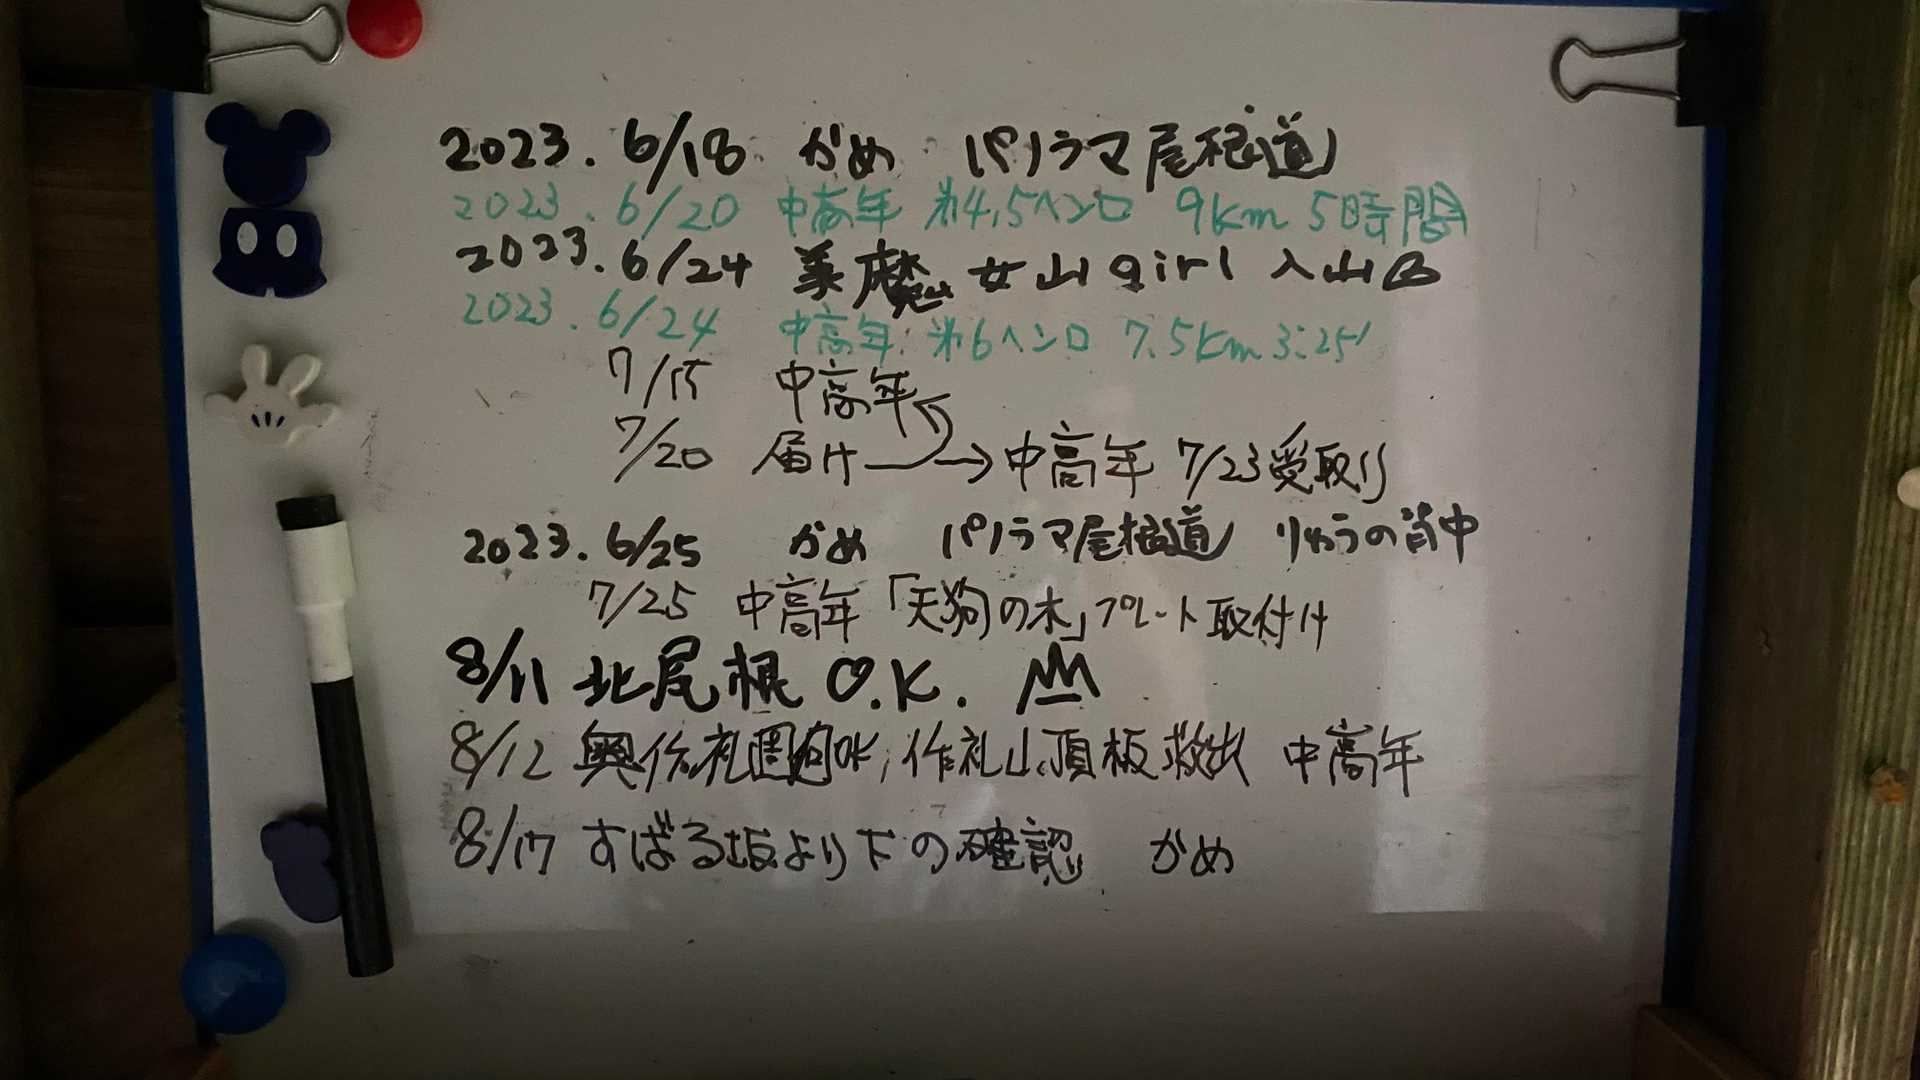 2023.6/18 かめ パノラマ尾根道
2023.6/20 中高年 第4,5ヘンロ 9km 5時間
2023.6/24 美魔女山girl 入山
2023.6/24 中高年 第6ヘンロ 7.5km 3:25'
7/15 中高年
7/20 届け → 中高年 7/23受取り
2023.6/25 かめ パノラマ尾根道 りゅうの背中
7/25 中高年「天狗の木」プレート取付け
8/11 北尾根 O.K.
8/12 奥作礼 作礼山頂板救出 中高年
8/17 すばる坂より下の確認 かめ